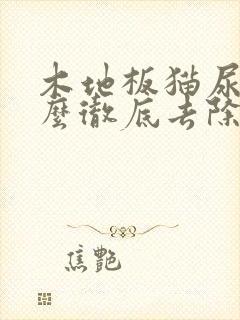 木地板猫尿
麼徹底去除
焦艷